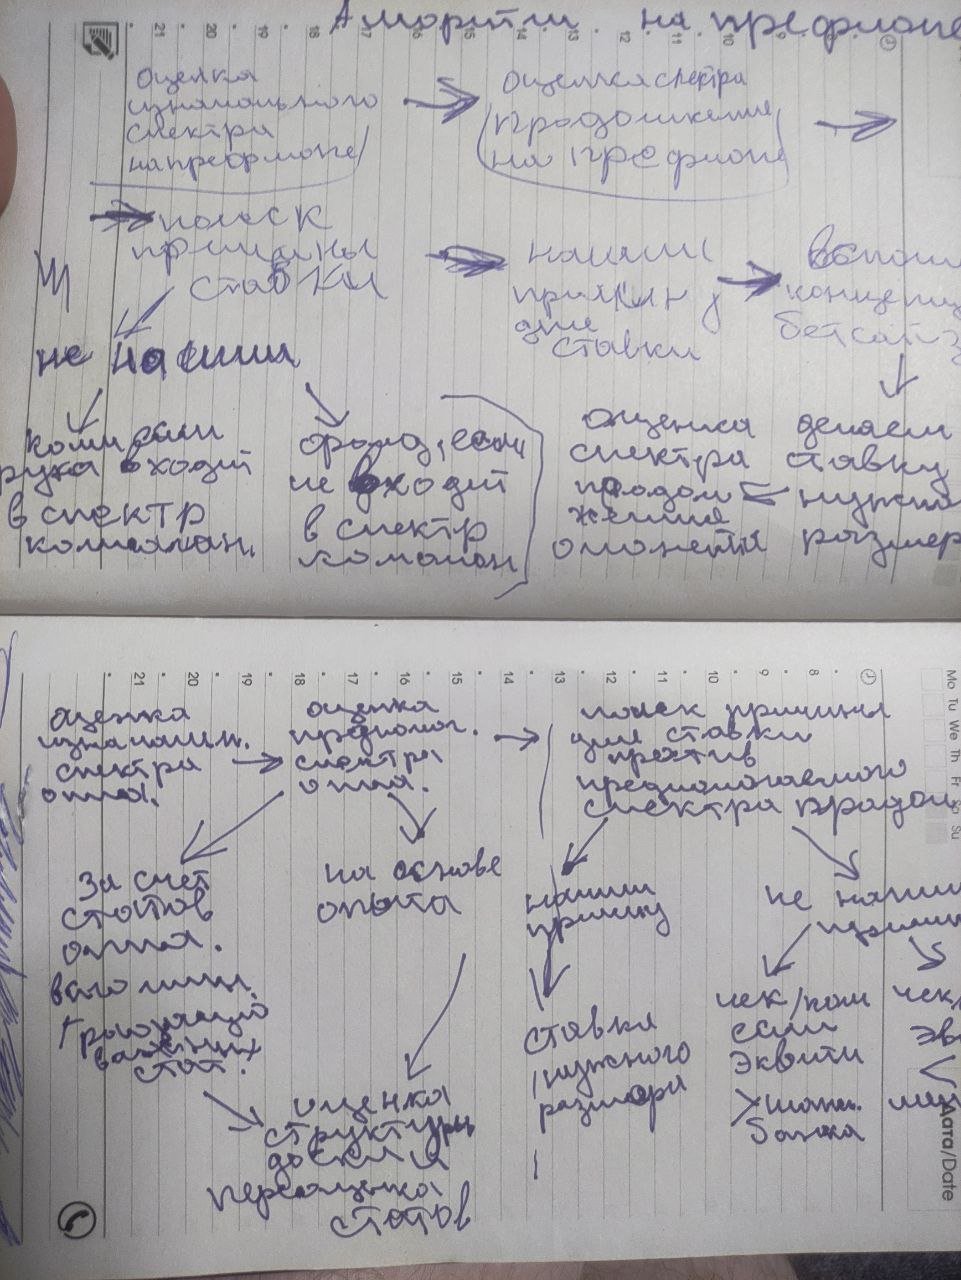 Алгоритм на префлопе
21 20 19 18 17 16 15 14 13 12 11 10 9
Оценка
изначального
спектра
на префлопе
оценка спектра
продолжения
на префлопе
поиск
причины
ставки
нашли
причину
для
ставки
бетсайз
не нашли
колл если
рука входит
в спектр
коллирован.
фолд, если
не входит
в спектр
оценка
спектра
продол
жения
оппонента
делаем
ставку
размер
21 20 19 18 17 16 15 14 13 12 11 10 9 8
Mo Tu We Th Fr Sa Su
оценка
изначальн.
спектра
оппа.
оценка
предполог.
спектра
оппа.
поиск причины
для ставки
против
предпологаемого
спектра продол
За счет
статов
оппа.
на основе
опыта
нашли
причину
не нашли
чек/колл
если
эквити
>шанс.
банка
чек/
экв
<
ставка
нужного
размера
стат.
оценка
структуры
доски и
переоценка
статов
Дата/Date